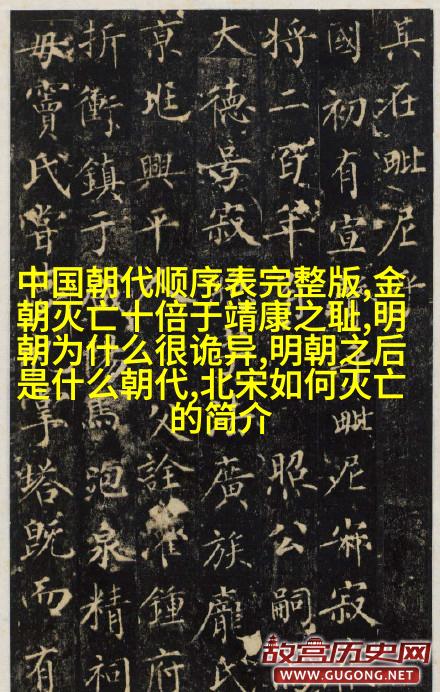 中国朝代顺序表完整版,金
朝灭亡十倍于靖康之耻,明
朝为什么很诡异,明朝之后
是什么朝代,北宋如何灭亡
的简介
其在毗尼
國初有宣 毗尼 寂
將二百年 照公嗣
大德号寂 廣族龐氏
京兆興平 人詮 鍾府
折衝鎮于 馬泡泉精祠
毋竇氏嘗 掌塔既而有
故宫历史网
WWW.GUGONG.NET